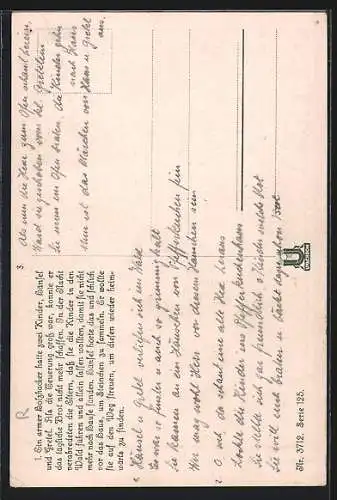 1. Ein armer Holzhacker hatte zwei Kinder, Hänsel
und Gretel. Als die Teuerung groß war, konnte er
das tägliche Brot nicht mehr schaffen. In der Nacht
verabredeten die Eltern, daß sie die Kinder in den
Wald führen und allein lassen wollten, damit sie nicht
mehr nach Hause finden. Hänsel hörte das und schlich
vor das Haus, um Steinchen zu sammeln. Er wollte
sie auf den Weg streuen, um daheim wieder heim-
wärts zu finden.
Hänsel u Gretel verliefen sich im Wald
Es war so finster u auch so grimmig kalt
Sie kamen an ein Häuschen von Pfefferkuchen fein
Wer mag wohl Herr von diesem Häuschen sein
2. O weh, da schaut eine alte Hex heraus
Lockte die Kinder ins Pfefferkuchenhaus
Sie stellte sich gar freundlich o Hänsel welche Not
Sie will euch braten u bäckt dazu schon Brot
3. Als nun die Hexe zum Ofen schaut herein
Ward sie geschoben vom kl. Gretelein
Sie muss im Ofen braten, die Kinder gehn
nach Haus
Nun ist das Märchen von Hans u Gretel
aus.
Nr. 3712. Serie 125.